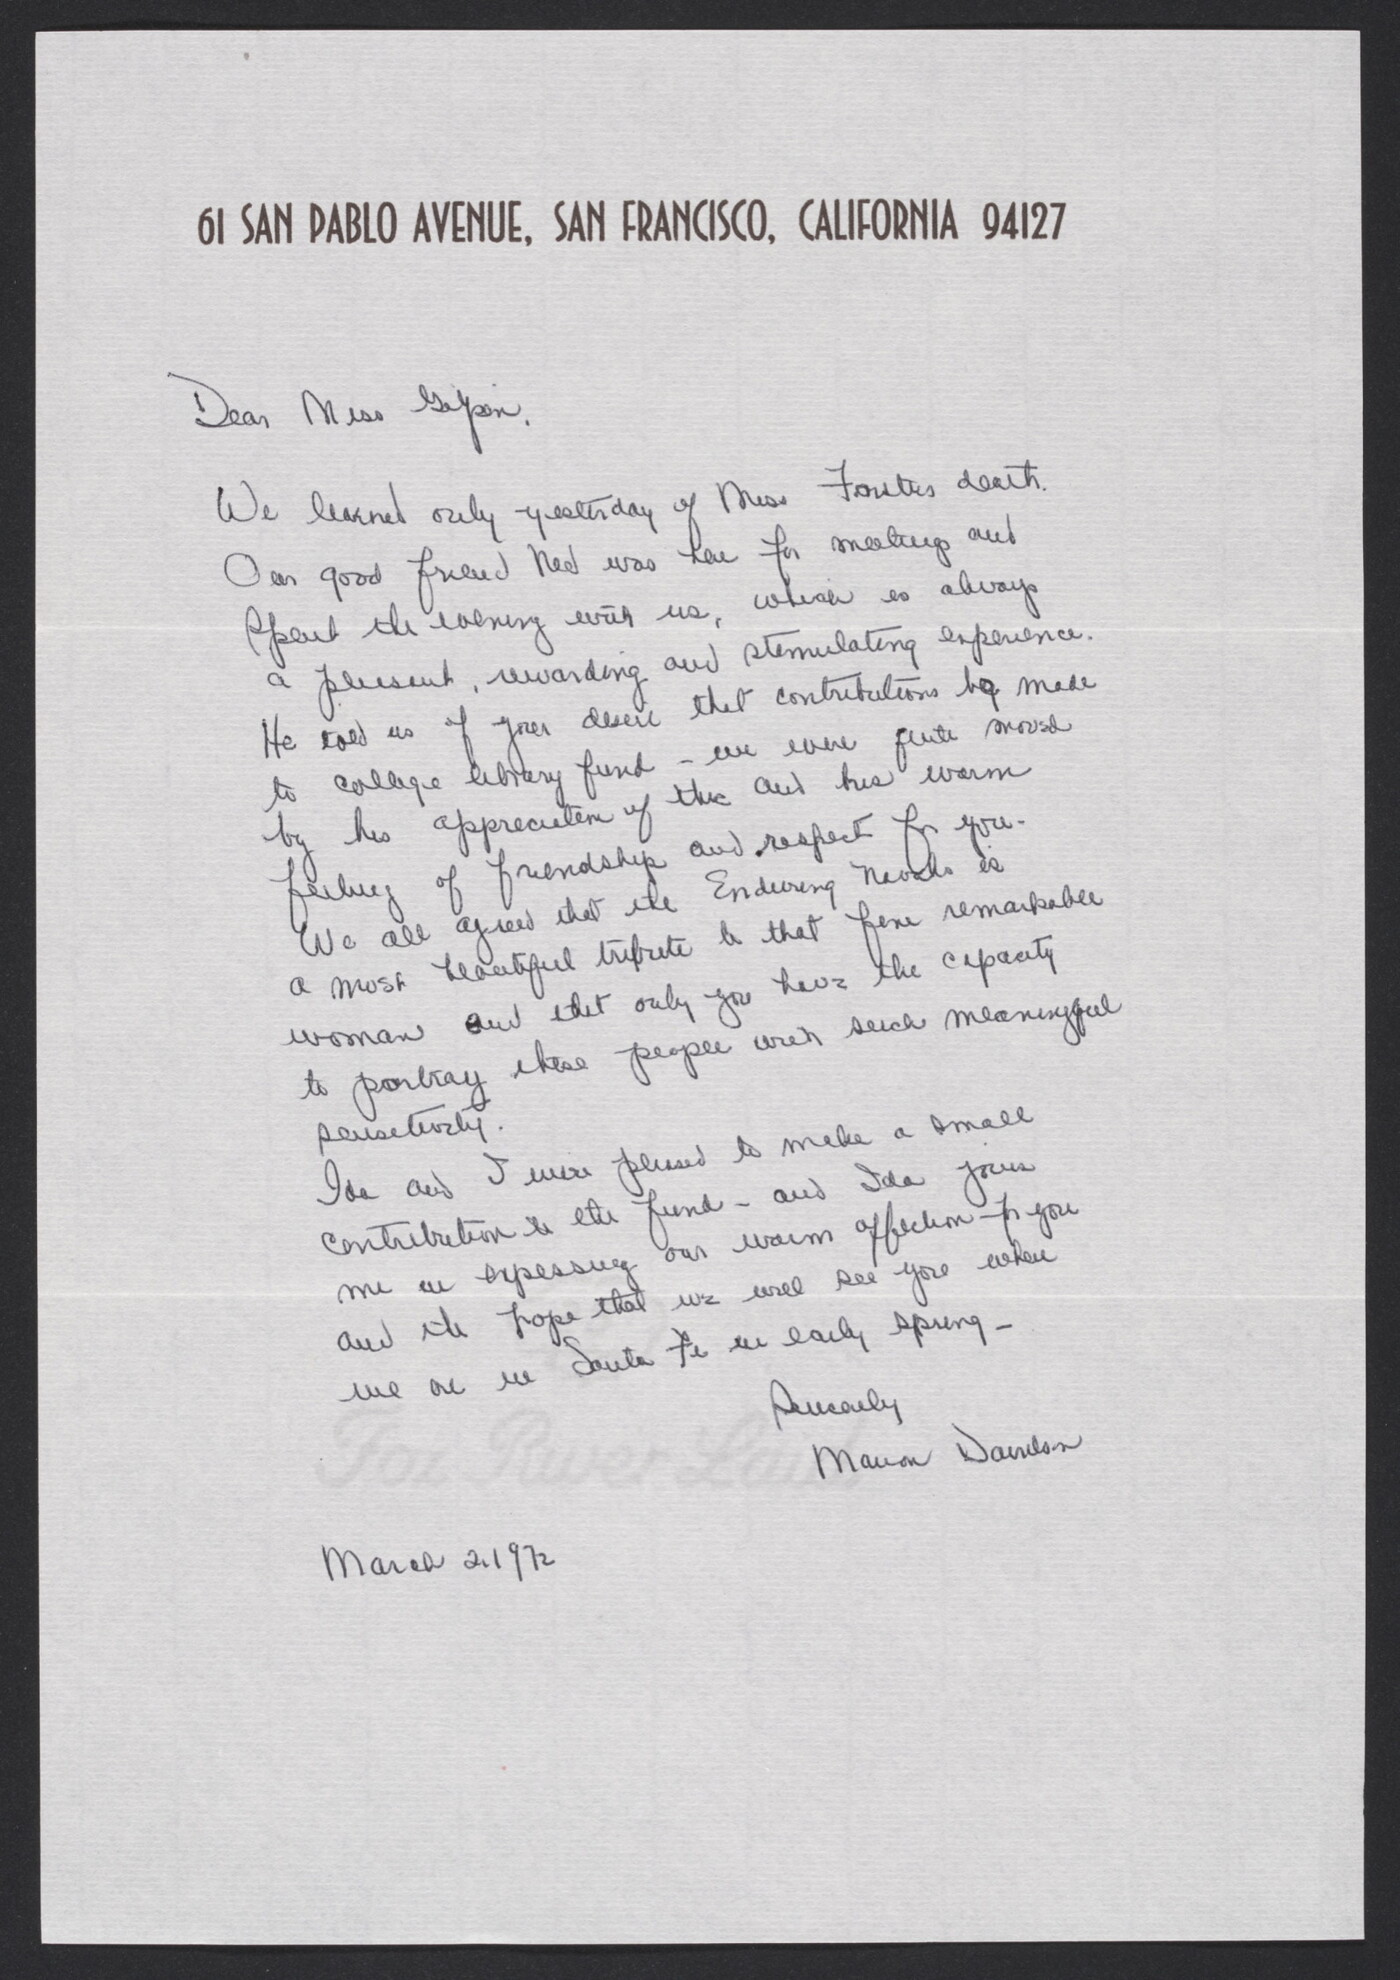 61 SAN PABLO AVENUE, SAN FRANCISCO, CALIFORNIA 94127
Dear Miss Gilpin,
We learned only yesterday of Miss Forsters death.
Our good friend Ned was here for meetings and
spent the evening with us, which is always
a plesant, rewarding and stimulating experience.
He told us of your desire that contributions be made
to college library fund - we were quite moved
by his appreciation of this and his warm
feeling of friendship and respect for you.
We all agreed that the Enduring Navaho is
a most beautiful tribute to that fine remarkable
woman and that only you have the capacity
to portray these people with such meaningful
sensitivity.
Ida and I were plesed to make a small
contribution to the fund - and Ida joins
me in expessing our warm affection for you
and the hope that we will see you when
we are in Santa Fe in early spring -
Sincerely
Marion Davidson
Fox River Laid
March 2, 1972